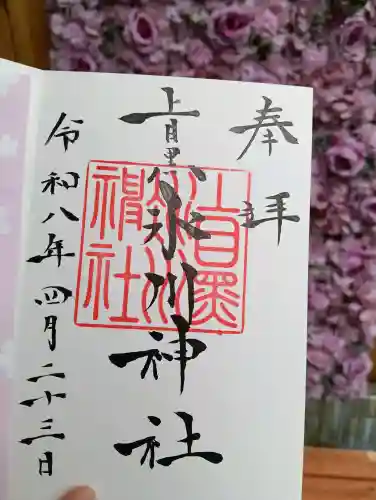 奉拝
上目黒氷川神社
上目黒氷川神社
令和八年四月二十三日